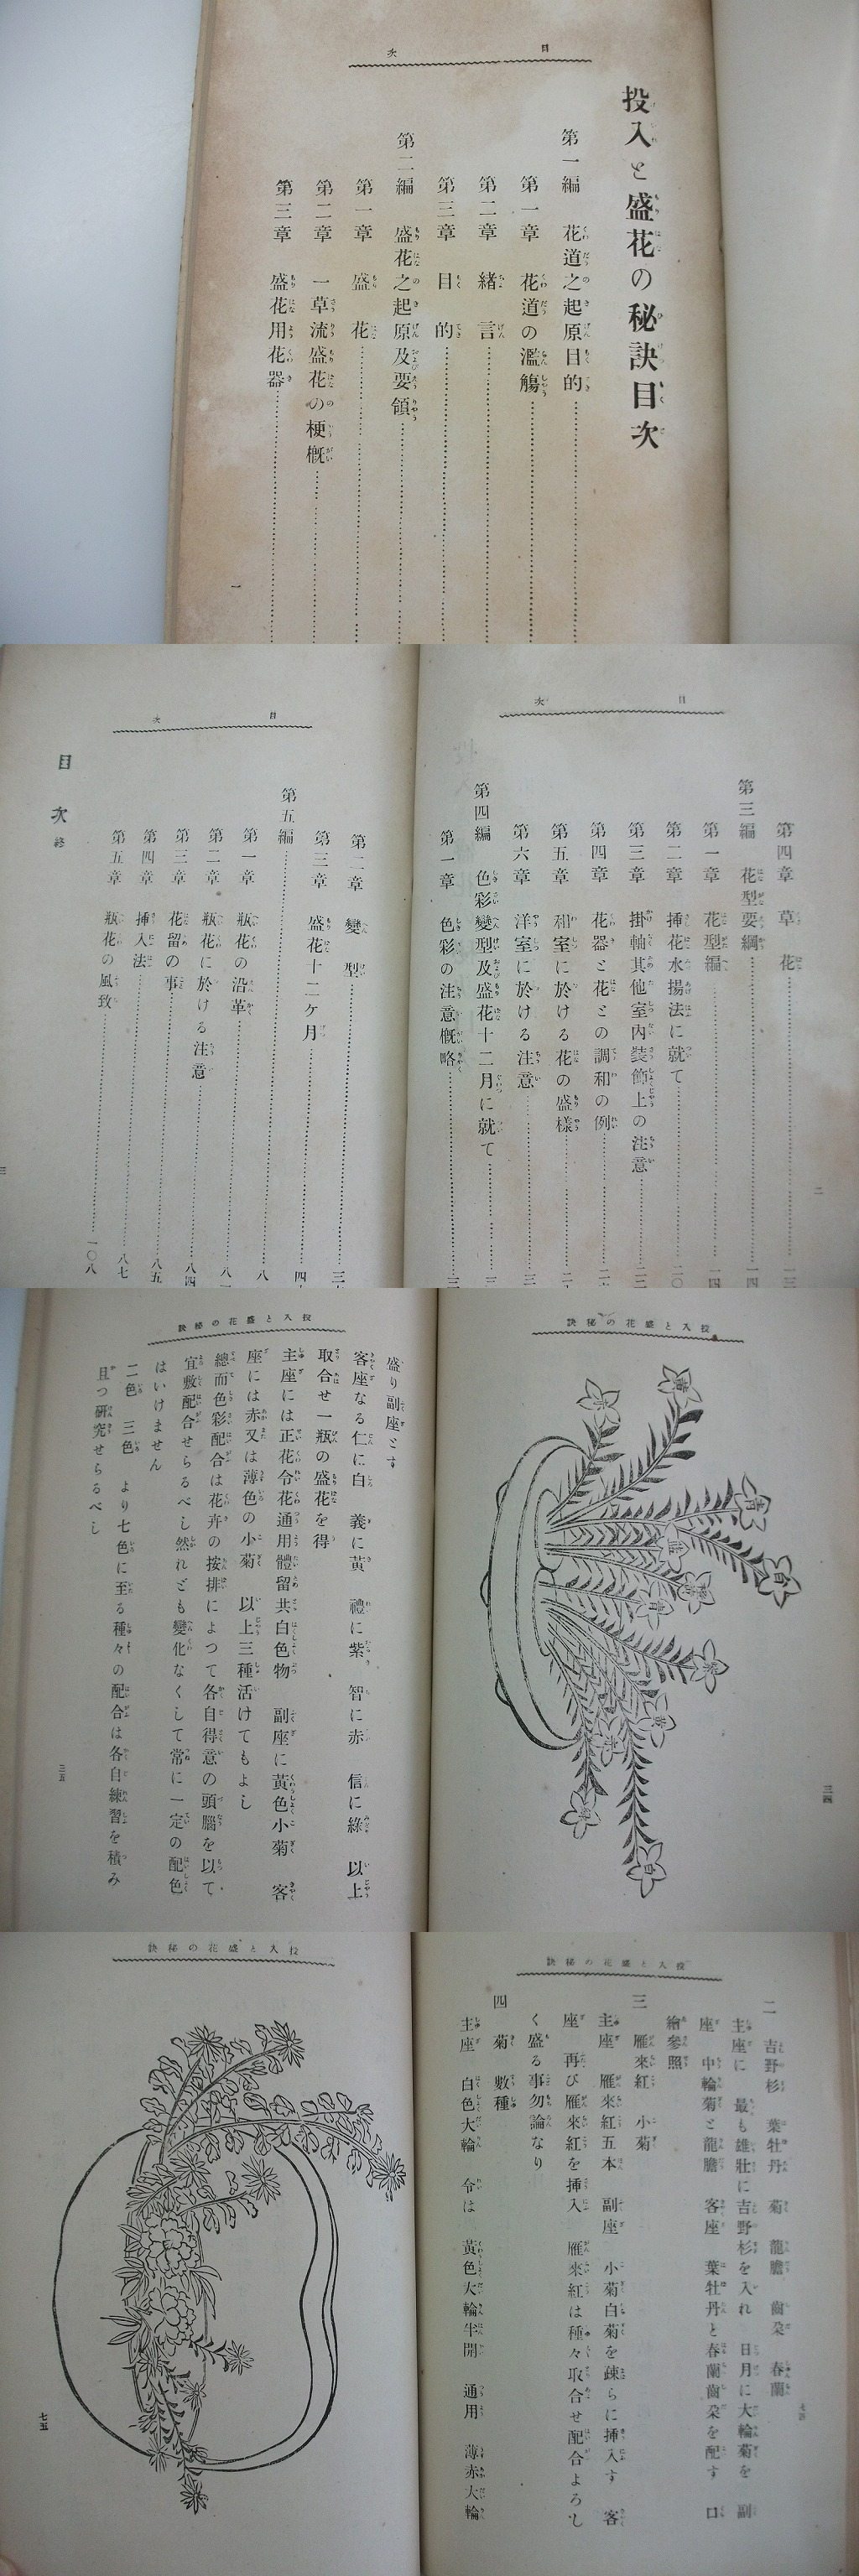 目次
投入と盛花の秘訣目次
第一編 花道之起原目的
第一章 花道の濫觴
第二章 緒言
第三章 目的
第二編 盛花之起原及要領
第一章 盛花
第二章 一草流盛花の梗概
第三章 盛花用花器
一
目次
第四章 草花
第三編 花型要綱
第一章 花型編
第二章 挿花水揚法に就て
第三章 掛軸其他室内装飾上の注意
第四章 花器と花との調和の例
第五章 和室に於ける花の盛樣
第六章 洋室に於ける注意
第四編 色彩變型及盛花十二月に就て
第一章 色彩の注意概略
二
目次
第二章 變型
第三章 盛花十二ケ月
第五編 八
第一章 瓶花の沿革
第二章 瓶花に於ける注意
第三章 花留の事 八四
第四章 挿入法 八五
第五章 瓶花の風致 八七
一〇八
目次 終
三
投入と盛花の秘訣
三四
投入と盛花の秘訣
盛り副座とす
客座なる仁に白 義に黄 禮に紫 智に赤 信に綠 以上
取合せ一瓶の盛花を得
主座には正花令花通用體留共白色物 副座に黄色小菊 客
座には赤又は薄色の小菊 以上三種活けてもよし
總而色彩配合は花卉の按排によつて各自得意の頭腦を以て
宜敷配合せらるべし然れども變化なくして常に一定の配色
はいけません
二色 三色 より七色に至る種々の配合は各自練習を積み
且つ研究せらるべし
三五
投入と盛花の秘訣
二 吉野杉 葉牡丹 菊 龍膽 齒朶 春蘭
主座に 最も雄壯に吉野杉を入れ 日月に大輪菊を 副
座 中輪菊と龍膽 客座 葉牡丹と春蘭齒朶を配す 口
繪參照
三 雁來紅 小菊
主座 雁來紅五本 副座 小菊白菊を疎らに挿入す 客
座 再び雁來紅を挿入 雁來紅は種々取合せ配合よろし
く盛る事勿論なり
四 菊 數種
主座 白色大輪 令は 黄色大輪半開 通用 薄赤大輪
七四
投入と盛花の秘訣
七五